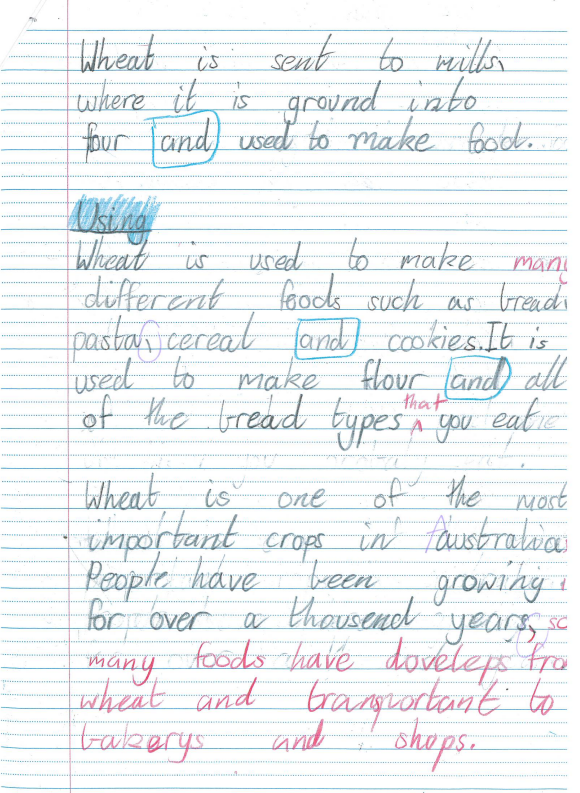 Wheat is sent to mills,
where it is ground into
flour and used to make food.
Using
Wheat is used to make many
different foods such as bread,
pasta, cereal and cookies. It is
used to make flour and all
of the bread types that you eat
Wheat is one of the most
important crops in Australia
People have been growing
for over a thousend years, so
many foods have doveleps from
wheat and transportant to
bakerys and shops.